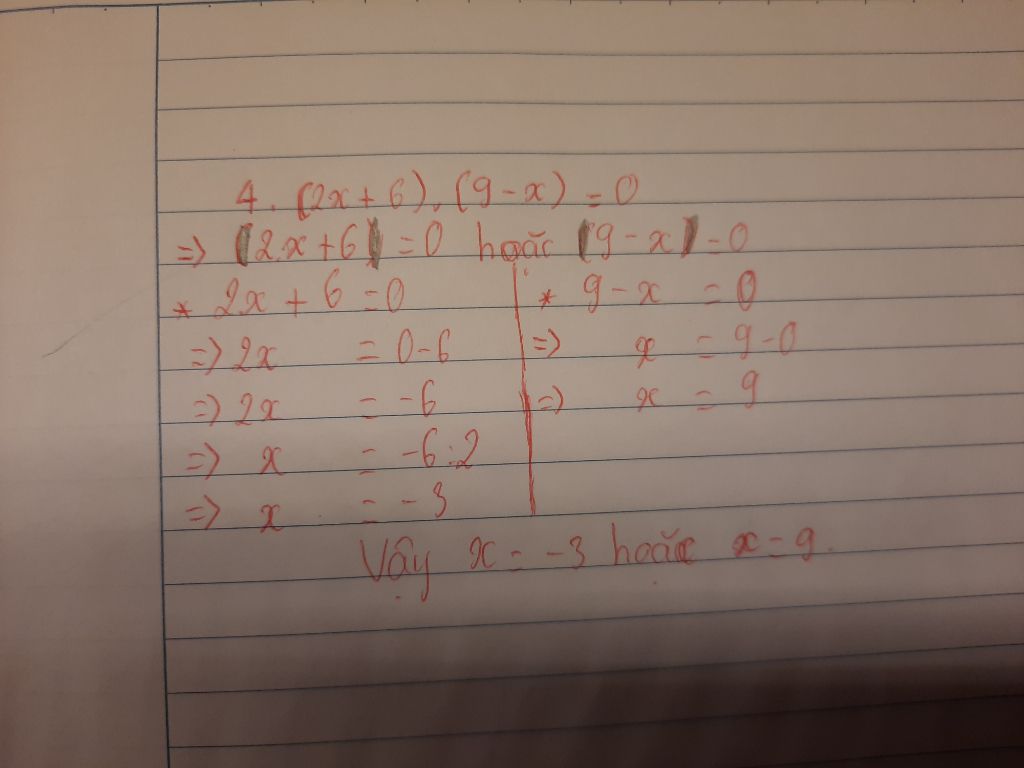 4. (2x + 6). (9 - x) = 0
=> (2x + 6) = 0 hoặc (9 - x) = 0
* 2x + 6 = 0 * 9 - x = 0
=> 2x = 0 - 6 => x = 9 - 0
=> 2x = -6 => x = 9
=> x = -6 : 2
=> x = -3
Vậy x = -3 hoặc x = 9.